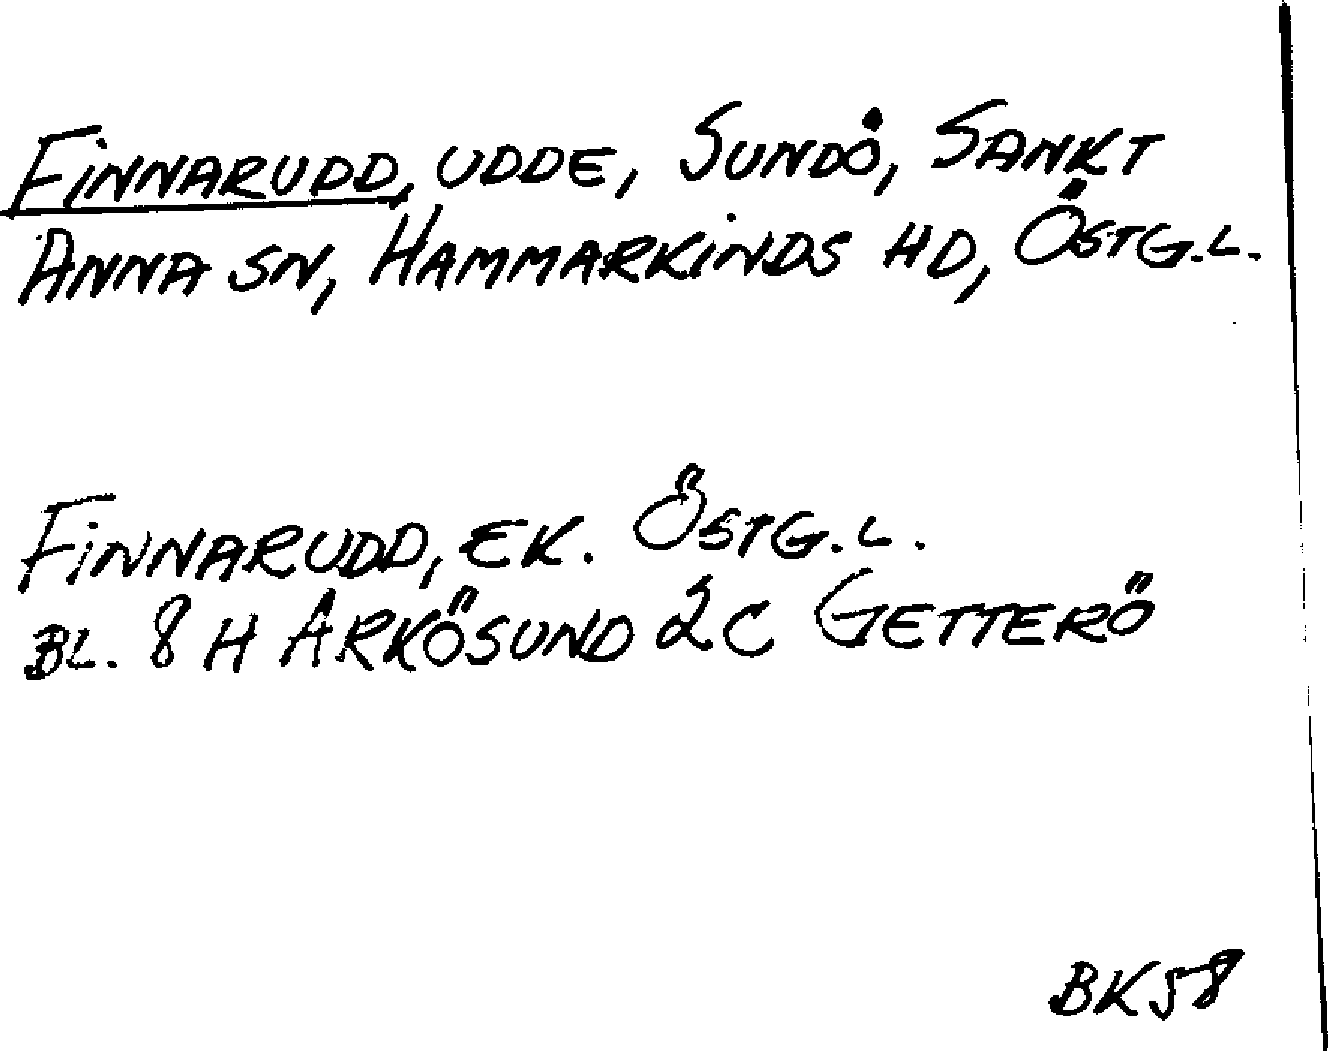 FINNARUDD, UDDE, SUNDÖ, SANKT
ANNA SN, HAMMARKINDS HD, ÖSTG.L.
FINNARUDD, EK. ÖSTG.L.
BL. 8 H ARKÖSUND 2C GETTERÖ
BK58